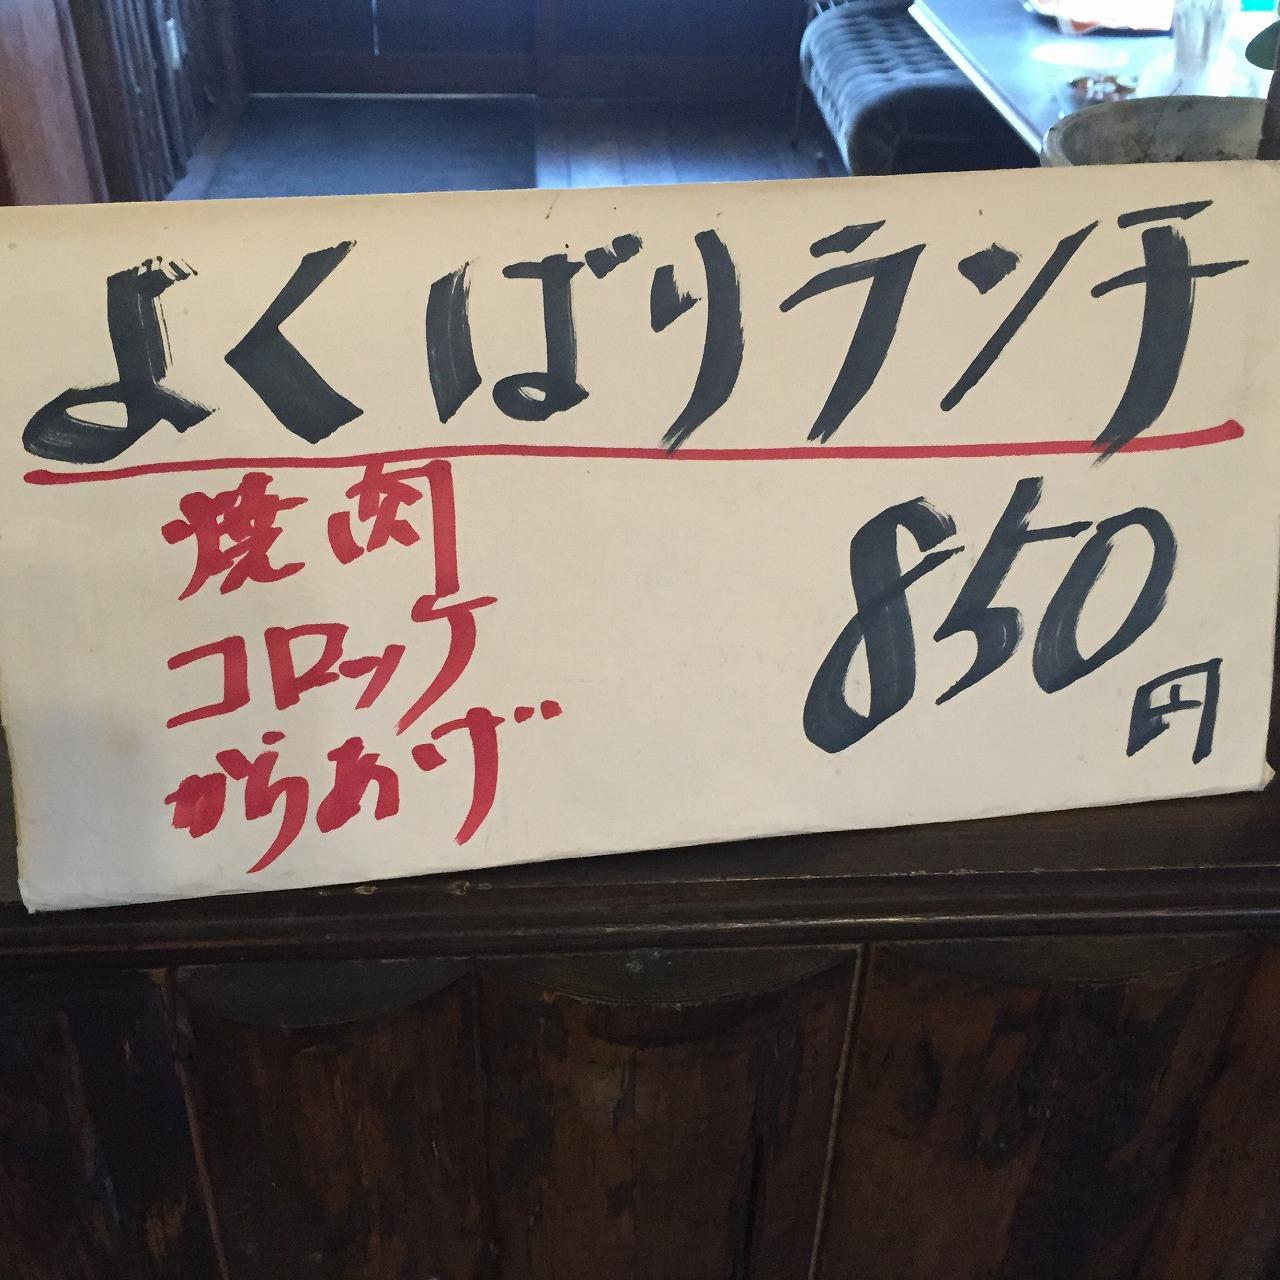 よくばりランチ
焼肉
コロッケ
からあげ
850円